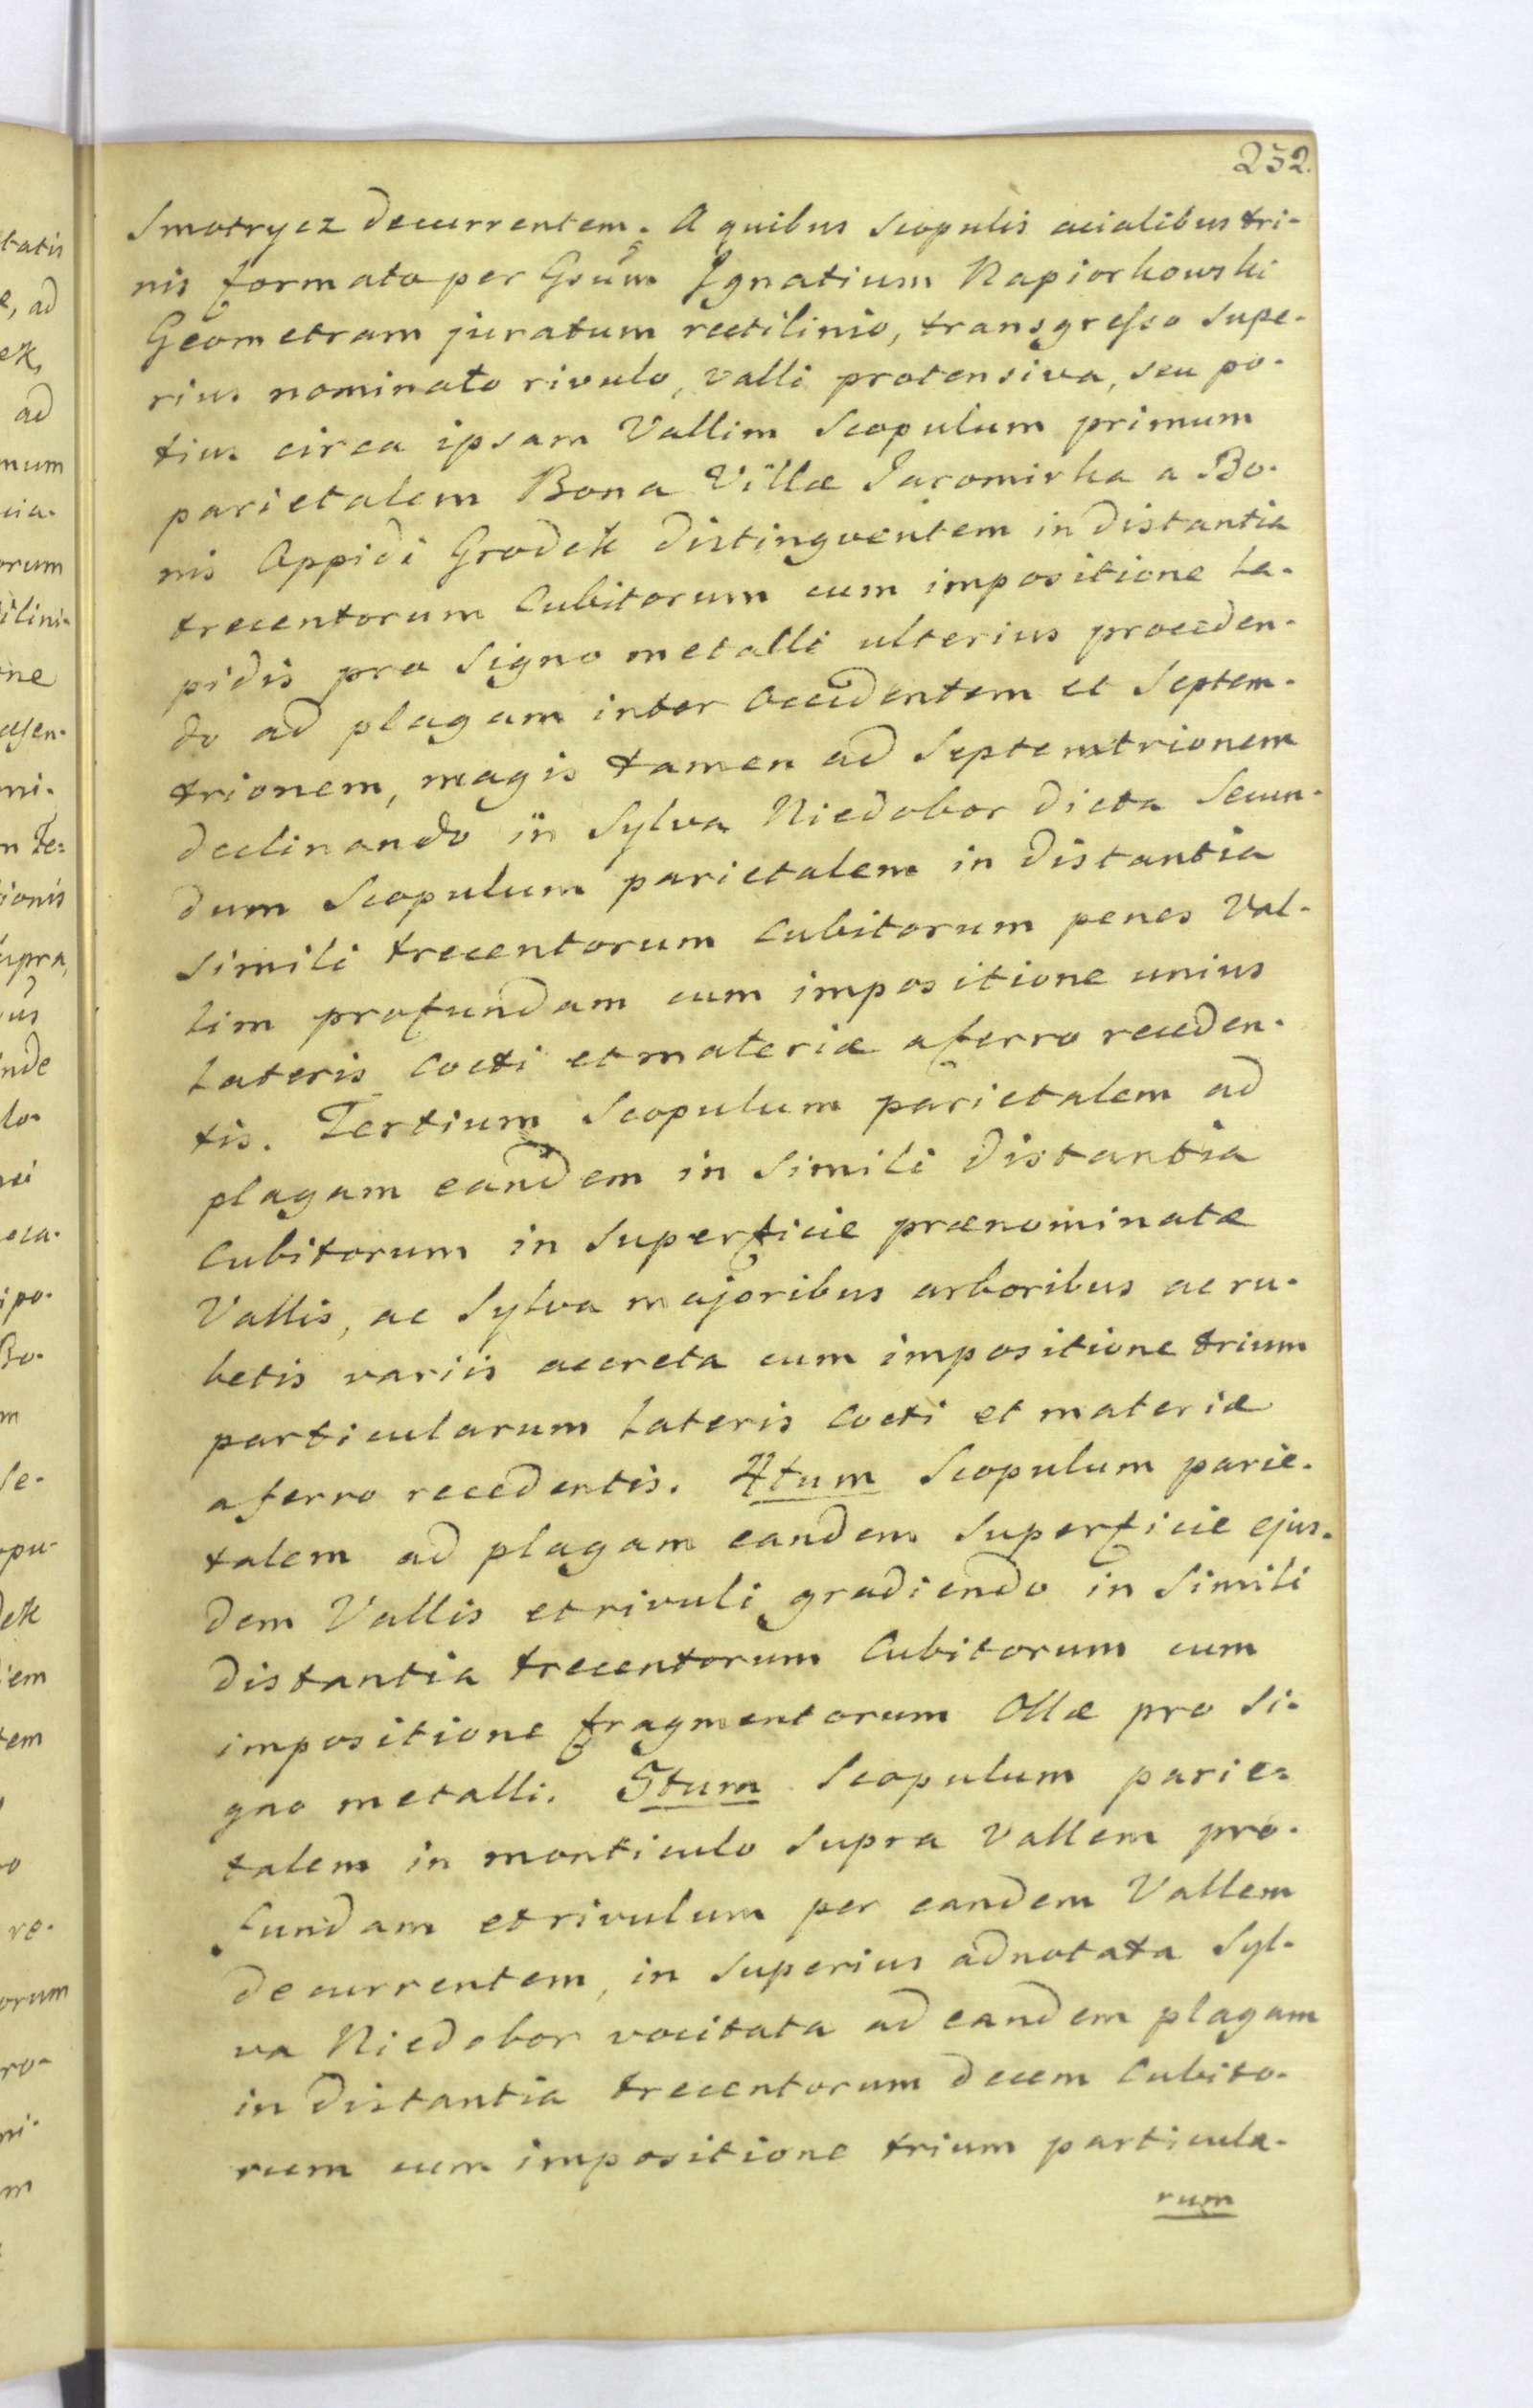 232.
Smotrycz decurrentem. A quibus scopulis acialibus tri-
nis formato per Gsum Ignatium Rapiorkowski
Geometram juratum rectilinio, transgresso supe-
rius nominato rivulo, valli protensiva, seu po-
tius circa ipsam Vallim Scopulum primum
parietalem Bona Villæ Jaromirka a Bo-
nis Oppidi Grodek distingventem in distantia
trecentorum Cubitorum cum impositione La-
pidis pro Signo metalli ulterius proceden-
do ad plagam inter Occidentem et Septem-
trionem, magis tamen ad Septemtrionem
declinando in Sylva Niedobor dicta Secun-
dum Scopulum parietalem in distantia
simili trecentorum Cubitorum penes Val-
lim profundam cum impositione unius
Lateris Cocti et materiæ a ferro receden-
tis. Tertium Scopulum parietalem ad
plagam eandem in Simili distantia
Cubitorum in Superficie prænominatæ
Vallis, ac Sylva majoribus arboribus ac ru-
betis variis accreta cum impositione trium
particularum Lateris Cocti et materiæ
a ferro recedentis. 4tum Scopulum parie-
talem ad plagam eandem Superficie ejus-
dem Vallis et rivuli gradiendo in Simili
distantia trecentorum Cubitorum cum
impositione fragmentorum Ollæ pro Si-
gno metalli. 5tum Scopulum parie-
talem in monticulo Supra Vallem pro-
fundam et rivulum per eandem Vallem
decurrentem, in Superius adnotata Syl-
va Niedobor vocitata ad eandem plagam
in distantia trecentorum decem Cubito-
rum cum impositione trium particula-
rum